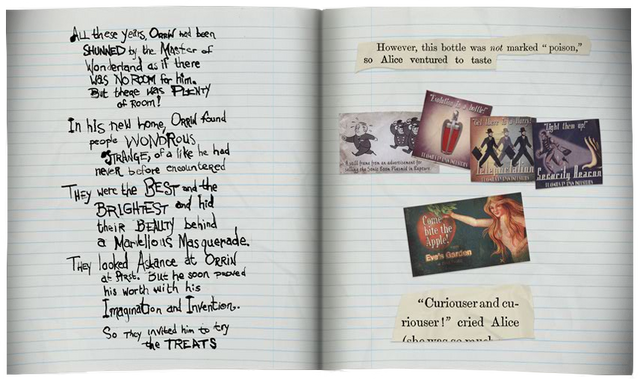 ALL these years, Orrin had been
SHUNNED by the Master of
Wonderland as if there
WAS NO ROOM for him.
But there was PLENTY
of Room!
In his new home, Orrin found
people WONDROUS
STRANGE, of a like he had
never before encountered
THEY were the BEST and the
BRIGHTEST and hid
their BEAUTY behind
a Marvellous Masquerade.
THEY looked Askance at ORRIN
at first. But he soon proved
his worth with his
Imagination and Invention.
So they invited him to try
the TREATS
However, this bottle was not marked “poison,”
so Alice ventured to taste
A still frame from an advertisement for
selling the Sonic Boom Plasmid in Rapture
in a bottle!
Teleportation
"Light them up!"
Security Beacon
Come
bite the
Apple!
Eve's Garden
“Curiouser and cu-
riouser!” cried Alice
(she was so much